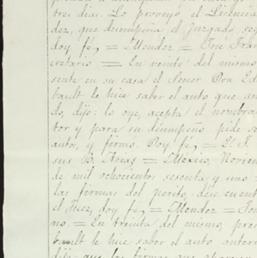 tres dias. Lo proveyó el Licencia
dez, que desempeña el Juzgado seg
doy fé, = Mendez = José Fran
cretario = En veinte del mismo
sente en su casa el Señor Don Ed
bault le hice saber el auto que an
do, dijo: lo oye, acepta el nombra
tor y para su desempeño pide se
autos, y firmó. Doy fé, =
sus B. Arias = Mexico, Noviem
de mil ochocientos sesenta y uno =
las firmas del perito, dése cuenta
el Juez, doy fé, = Mendez = José
no. = En treinta del mismo, pres
bault le hice saber el auto anteri
dijo: que las firmas que